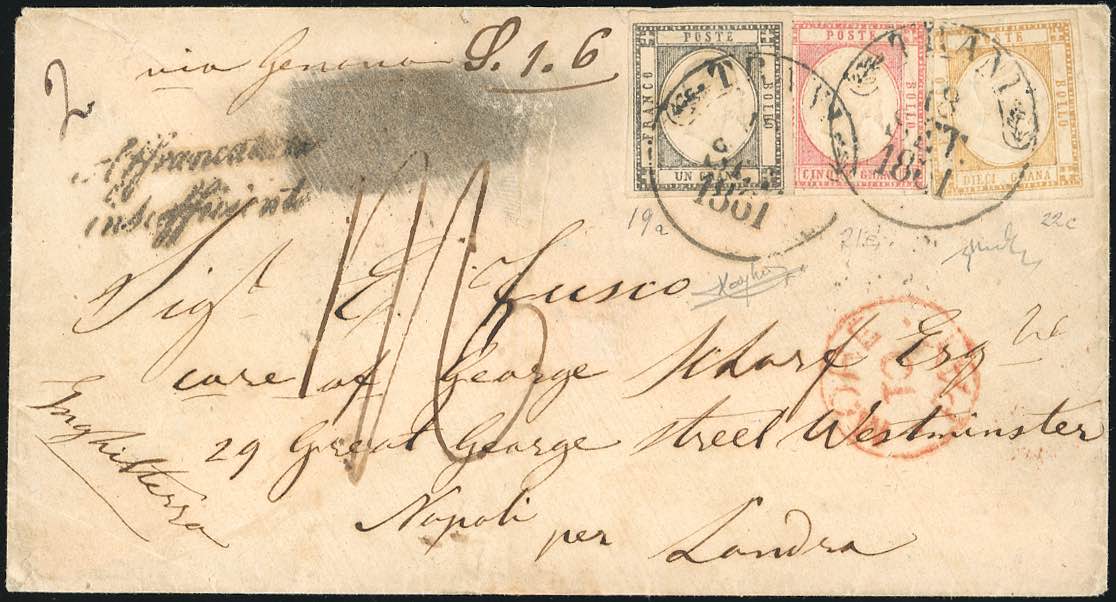 via Genova S. 1. 6
2
Affrancatura
insufficiente
POSTE
FRANCO
BOLLO
UN GRANA
POSTE
BOLLO
CINQUE GRANA
POSTE
BOLLO
DIECI GRANA
TRANI
SET.
1861
TRANI
18
SET.
1861
19a
22c
1/6
Sigr E. Fusco
care of George Scharf Esqre
29 Great George street Westminster
Napoli per Londra
Inghilterra